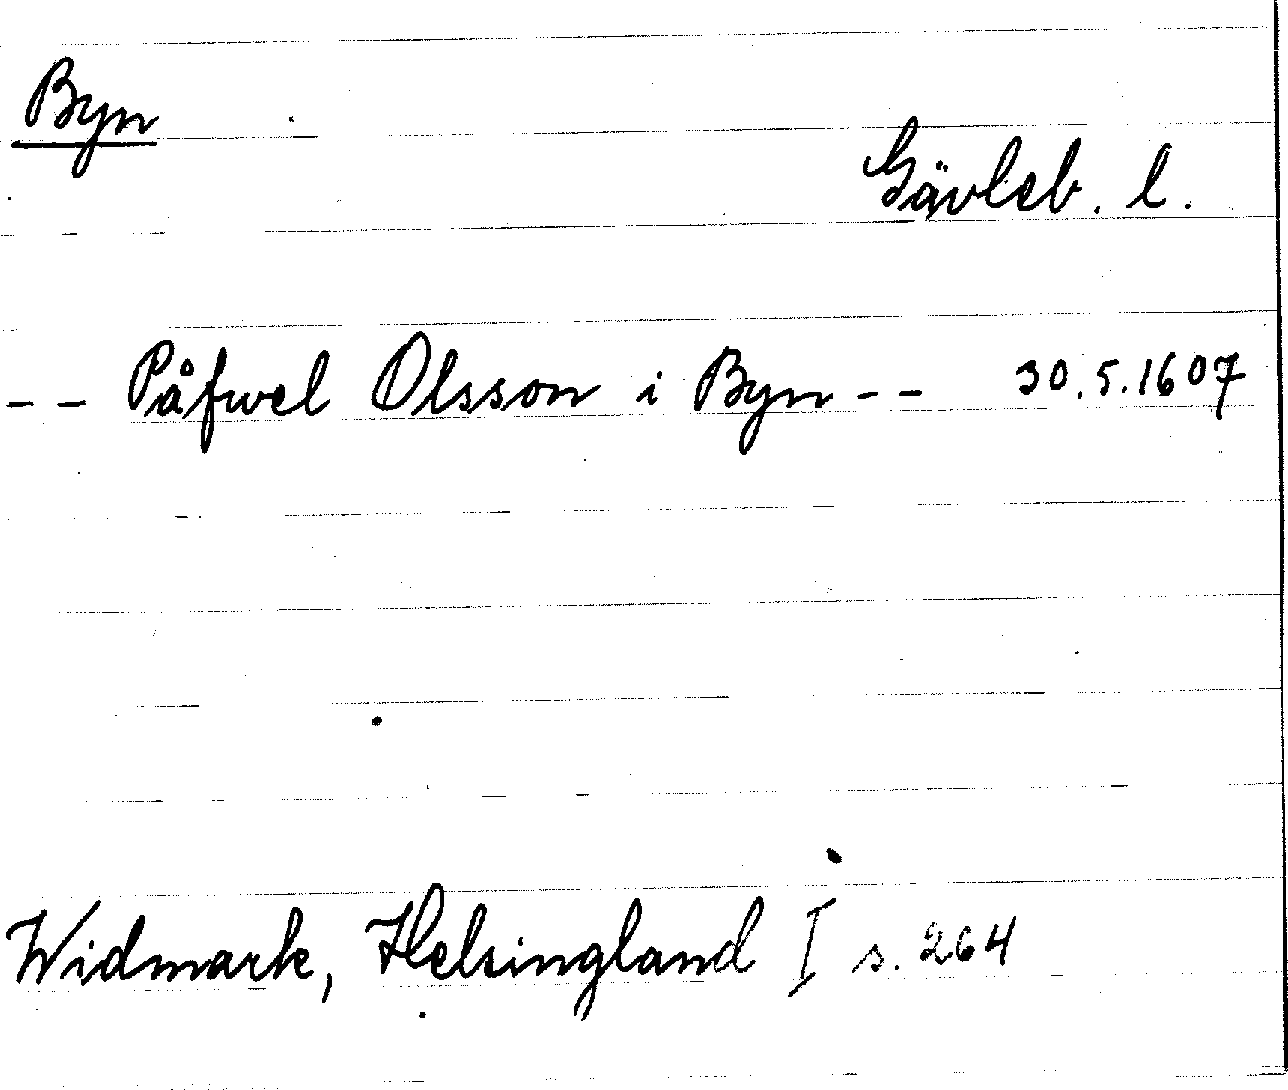 Byn
Gävleb. l.
-- Påfwel Olsson i Byn -- 30.5.1607
Widmark, Helsingland I s. 264